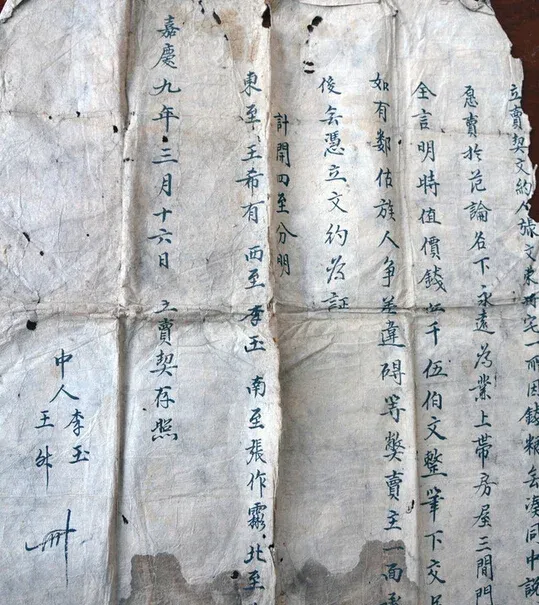 立賣契文約人張文東有宅一所因錢粮無湊同中説
急賣於范論名下永遠為業上帶房屋三間門
全言明時值價錢伍千伍伯文整筆下交足
如有鄰佑族人争差違碍等獘賣主一面承
後無憑立文約為証
計開四至分明
東至王希有 西至李玉 南至張作霖 北至
嘉慶九年三月十六日 立賣契存照
中人李玉
王